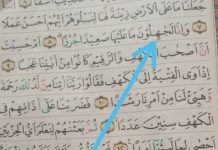 جَعَلْنَا مَا عَلَى الْأَرْضِ زِينَةً لَّهَا لِنَبْلُوَهُمْ أَيُّهُمْ
وَإِنَّا لَجَٰهِلُونَ مَا عَلَيْهَا صَعِيدًا جُرُزًا ٨ أَمْ حَسِبْتَ
أَنَّ أَصْحَٰبَ الْكَهْفِ وَالرَّقِيمِ كَانُوا مِنْ ءَايَٰتِنَا عَجَبًا
إِذْ أَوَى الْفِتْيَةُ إِلَى الْكَهْفِ فَقَالُوا رَبَّنَا ءَاتِنَا مِن لَّدُنكَ رَحْمَةً
وَهَيِّئْ لَنَا مِنْ أَمْرِنَا رَشَدًا ١٠ فَضَرَبْنَا عَلَىٰ
الْكَهْفِ سِنِينَ عَدَدًا ١١ ثُمَّ بَعَثْنَٰهُمْ لِنَعْلَمَ أَيُّ الْحِزْبَيْنِ